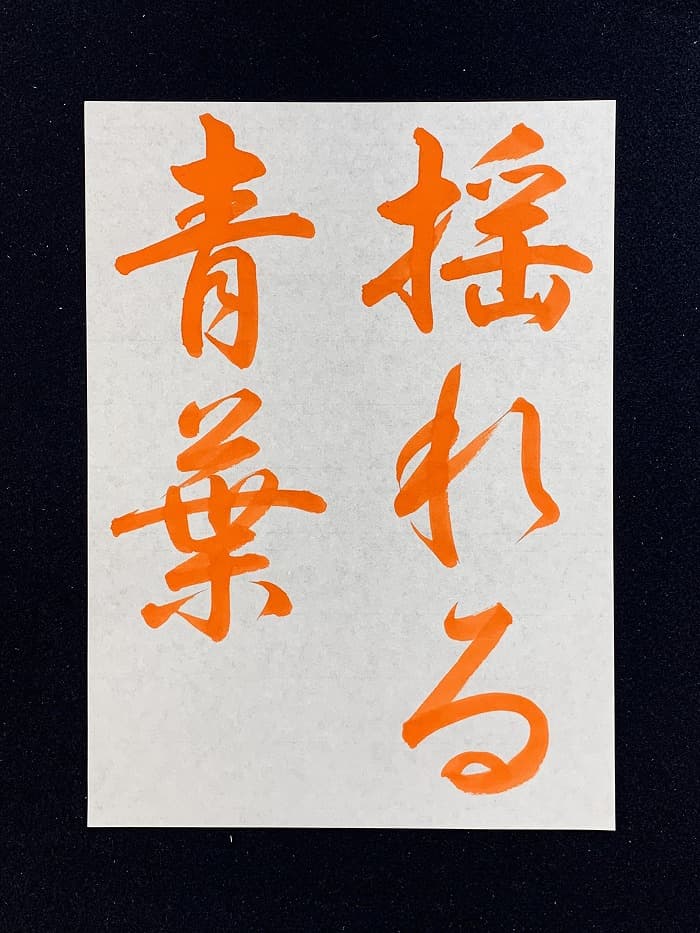 揺れる
青葉